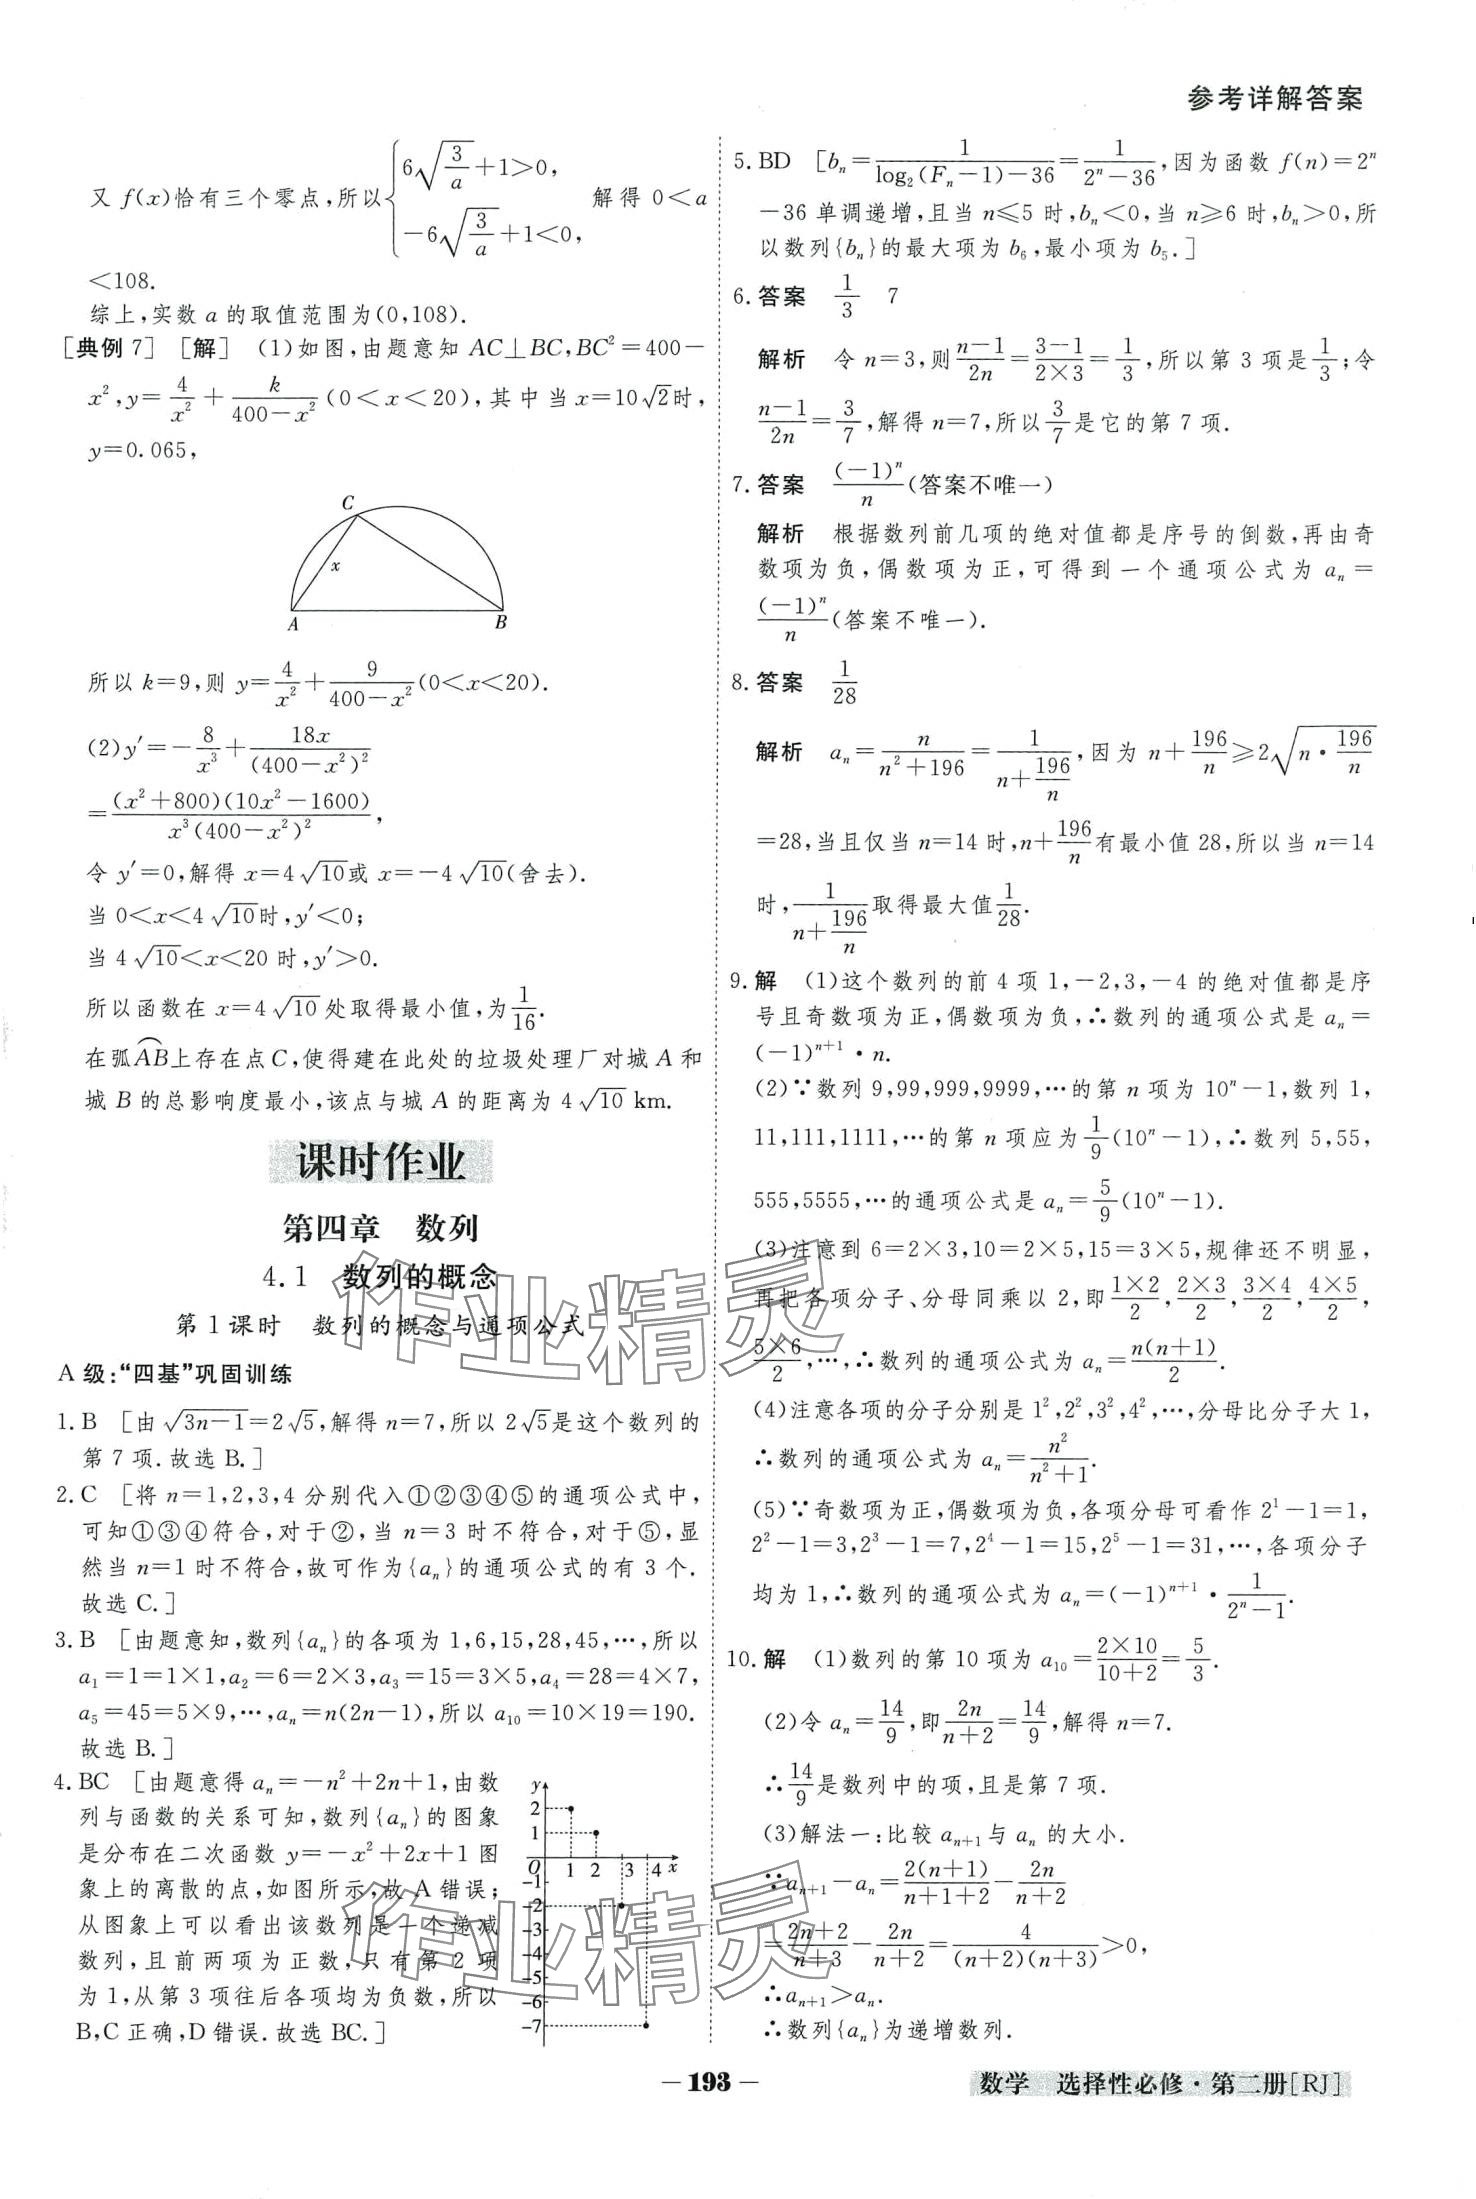 参考详解答案
又 f(x)恰有三个零点,所以{6√(3/a)+1>0, -6√(3/a)+1<0, 解得 0<a
<108.
综上,实数 a 的取值范围为(0,108).
[典例 7] [解] (1)如图,由题意知 AC⊥BC,BC²=400-
x²,y=4/x²+k/(400-x²)(0<x<20),其中当 x=10√2时,
y=0.065,
C
x
A B
所以 k=9,则 y=4/x²+9/(400-x²)(0<x<20).
(2)y′=-8/x³+18x/(400-x²)²
=(x²+800)(10x²-1600)/x³(400-x²)²,
令 y′=0,解得 x=4√10或 x=-4√10(舍去).
当 0<x<4√10时,y′<0;
当 4√10<x<20 时,y′>0.
所以函数在 x=4√10处取得最小值,为1/16.
在弧AB上存在点 C,使得建在此处的垃圾处理厂对城 A 和
城 B 的总影响度最小,该点与城 A 的距离为 4√10 km.
课时作业
第四章 数列
4.1 数列的概念
第 1 课时 数列的概念与通项公式
A 级:“四基”巩固训练
1. B [由 √(3n-1)=2√5,解得 n=7,所以 2√5是这个数列的
第 7 项.故选 B.]
2. C [将 n=1,2,3,4 分别代入①②③④⑤的通项公式中,
可知①③④符合,对于②,当 n=3 时不符合,对于⑤,显
然当 n=1 时不符合,故可作为{aₙ}的通项公式的有 3 个.
故选 C.]
3. B [由题意知,数列{aₙ}的各项为 1,6,15,28,45,…,所以
a₁=1=1×1,a₂=6=2×3,a₃=15=3×5,a₄=28=4×7,
a₅=45=5×9,…,aₙ=n(2n-1),所以 a₁₀=10×19=190.
故选 B.]
4. BC [由题意得 aₙ=-n²+2n+1,由数
列与函数的关系可知,数列{aₙ}的图象
是分布在二次函数 y=-x²+2x+1 图
象上的离散的点,如图所示,故 A 错误;
从图象上可以看出该数列是一个递减
数列,且前两项为正数,只有第 2 项
为 1,从第 3 项往后各项均为负数,所以
B,C 正确,D 错误.故选 BC.]
y
2
1
O 1 2 3 4 x
-1
-2
-3
-4
-5
-6
-7
5. BD [bₙ=1/(log₂(Fₙ-1)-36)=1/(2ⁿ-36),因为函数 f(n)=2ⁿ
-36 单调递增,且当 n≤5 时,bₙ<0,当 n≥6 时,bₙ>0,所
以数列{bₙ}的最大项为 b₆,最小项为 b₅.]
6. 答案 1/3 7
解析 令 n=3,则(n-1)/2n=(3-1)/(2×3)=1/3,所以第 3 项是1/3;令
(n-1)/2n=3/7,解得 n=7,所以3/7是它的第 7 项.
7. 答案 (-1)ⁿ/n(答案不唯一)
解析 根据数列前几项的绝对值都是序号的倒数,再由奇
数项为负,偶数项为正,可得到一个通项公式为 aₙ=
(-1)ⁿ/n(答案不唯一).
8. 答案 1/28
解析 aₙ=n/(n²+196)=1/(n+196/n),因为 n+196/n≥2√(n·196/n)
=28,当且仅当 n=14 时,n+196/n有最小值 28,所以当 n=14
时,1/(n+196/n)取得最大值1/28.
9. 解 (1)这个数列的前 4 项 1,-2,3,-4 的绝对值都是序
号且奇数项为正,偶数项为负,∴数列的通项公式是 aₙ=
(-1)ⁿ⁺¹·n.
(2)∵数列 9,99,999,9999,…的第 n 项为 10ⁿ-1,数列 1,
11,111,1111,…的第 n 项应为1/9(10ⁿ-1),∴数列 5,55,
555,5555,…的通项公式是 aₙ=5/9(10ⁿ-1).
(3)注意到 6=2×3,10=2×5,15=3×5,规律还不明显,
再把各项分子、分母同乘以 2,即(1×2)/2,(2×3)/2,(3×4)/2,(4×5)/2,
(5×6)/2,…,∴数列的通项公式为 aₙ=n(n+1)/2.
(4)注意各项的分子分别是 1²,2²,3²,4²,…,分母比分子大 1,
∴数列的通项公式为 aₙ=n²/(n²+1).
(5)∵奇数项为正,偶数项为负,各项分母可看作 2¹-1=1,
2²-1=3,2³-1=7,2⁴-1=15,2⁵-1=31,…,各项分子
均为 1,∴数列的通项公式为 aₙ=(-1)ⁿ⁺¹·1/(2ⁿ-1).
10. 解 (1)数列的第 10 项为 a₁₀=(2×10)/(10+2)=5/3.
(2)令 aₙ=14/9,即2n/(n+2)=14/9,解得 n=7.
∴14/9是数列中的项,且是第 7 项.
(3)解法一:比较 aₙ₊₁与 aₙ 的大小.
∵aₙ₊₁-aₙ=2(n+1)/(n+1+2)-2n/(n+2)
=(2n+2)/(n+3)-2n/(n+2)=4/((n+2)(n+3))>0,
∴aₙ₊₁>aₙ.
∴数列{aₙ}为递增数列.
作业精灵
作业精灵
— 193 —
数学 选择性必修·第二册[RJ]